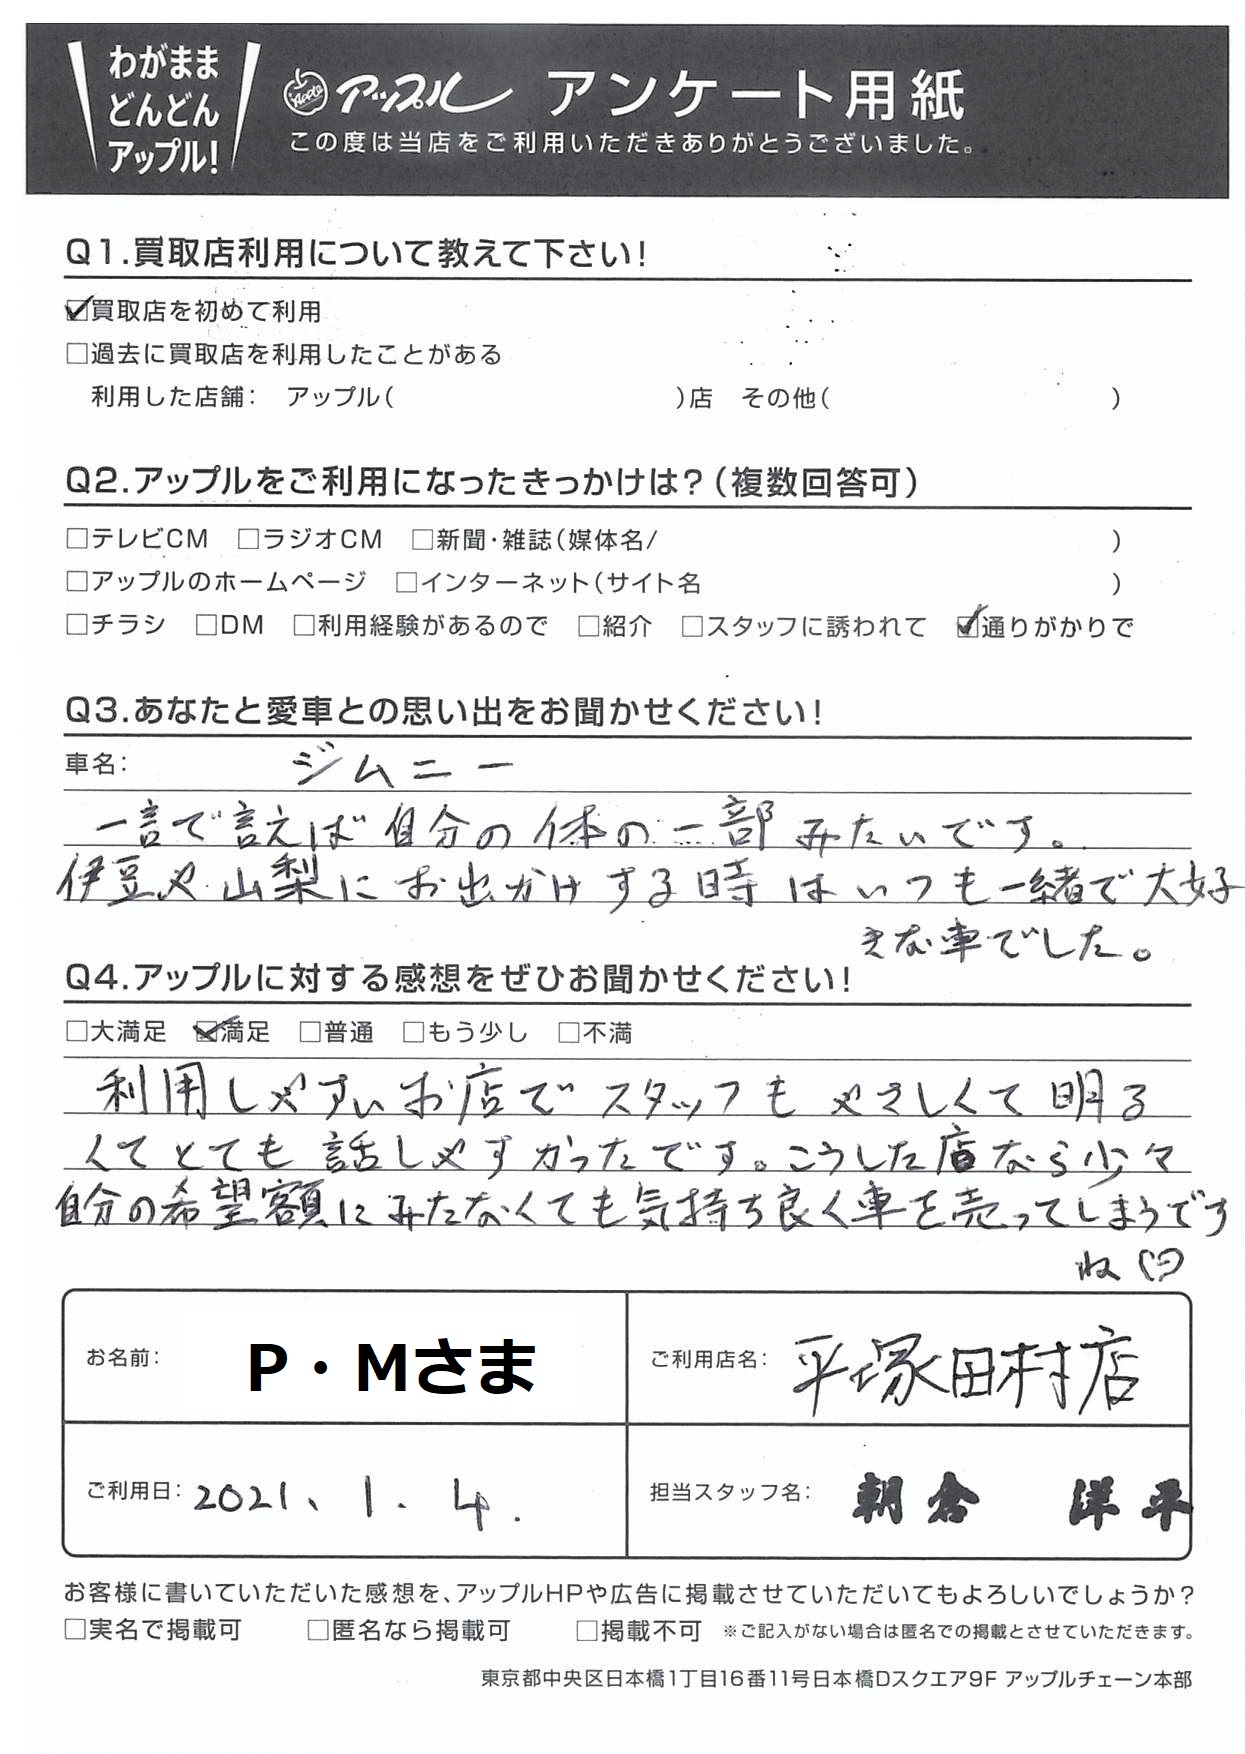 わがまま
どんどん
アップル!
Apple アップル アンケート用紙
この度は当店をご利用いただきありがとうございました。
Q1.買取店利用について教えて下さい!
☑買取店を初めて利用
□過去に買取店を利用したことがある
利用した店舗: アップル( )店 その他( )
Q2.アップルをご利用になったきっかけは?(複数回答可)
□テレビCM □ラジオCM □新聞・雑誌(媒体名/ )
□アップルのホームページ □インターネット(サイト名 )
□チラシ □DM □利用経験があるので □紹介 □スタッフに誘われて ☑通りがかりで
Q3.あなたと愛車との思い出をお聞かせください!
車名: ジムニー
一言で言えば自分の体の一部みたいです。
伊豆や山梨にお出かけする時はいつも一緒で大好
きな車でした。
Q4.アップルに対する感想をぜひお聞かせください!
□大満足 ☑満足 □普通 □もう少し □不満
利用しやすいお店でスタッフもやさしくて明る
くてとても話しやすかったです。こうした店なら少々
自分の希望額にみたなくても気持ち良く車を売ってしまうです
ね
お名前: P・Mさま
ご利用店名: 平塚田村店
ご利用日: 2021、1.4.
担当スタッフ名: 朝倉 洋平
お客様に書いていただいた感想を、アップルHPや広告に掲載させていただいてもよろしいでしょうか?
□実名で掲載可 □匿名なら掲載可 □掲載不可 ※ご記入がない場合は匿名での掲載とさせていただきます。
東京都中央区日本橋1丁目16番11号日本橋Dスクエア9F アップルチェーン本部